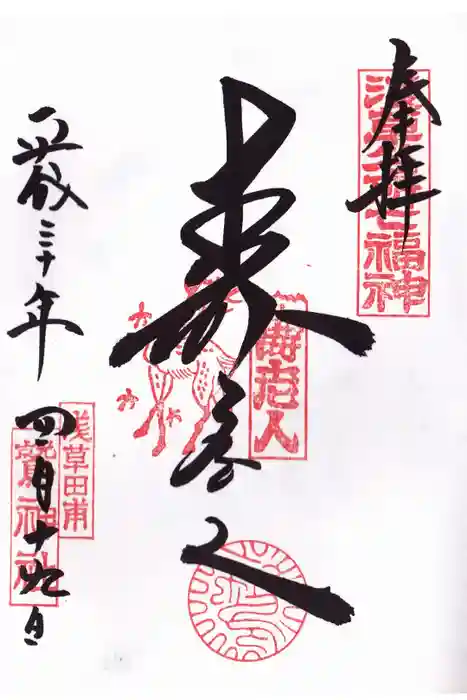 奉拝
浅草七福神
寿老人
壽老人
平成三十年四月十九日
浅草田甫
鷲神社